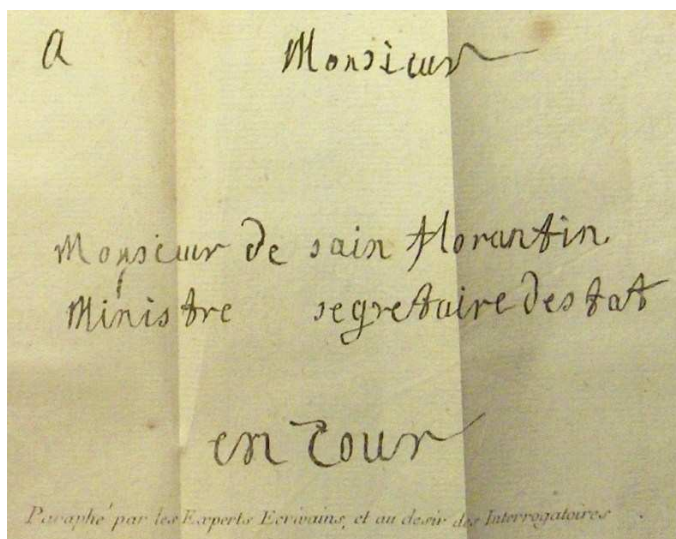 A Monsieur
Monsieur de sain florantin
Ministre segretaire destat
en Cour
Paraphé par les Experts Ecrivains, et au desir des Interrogatoires